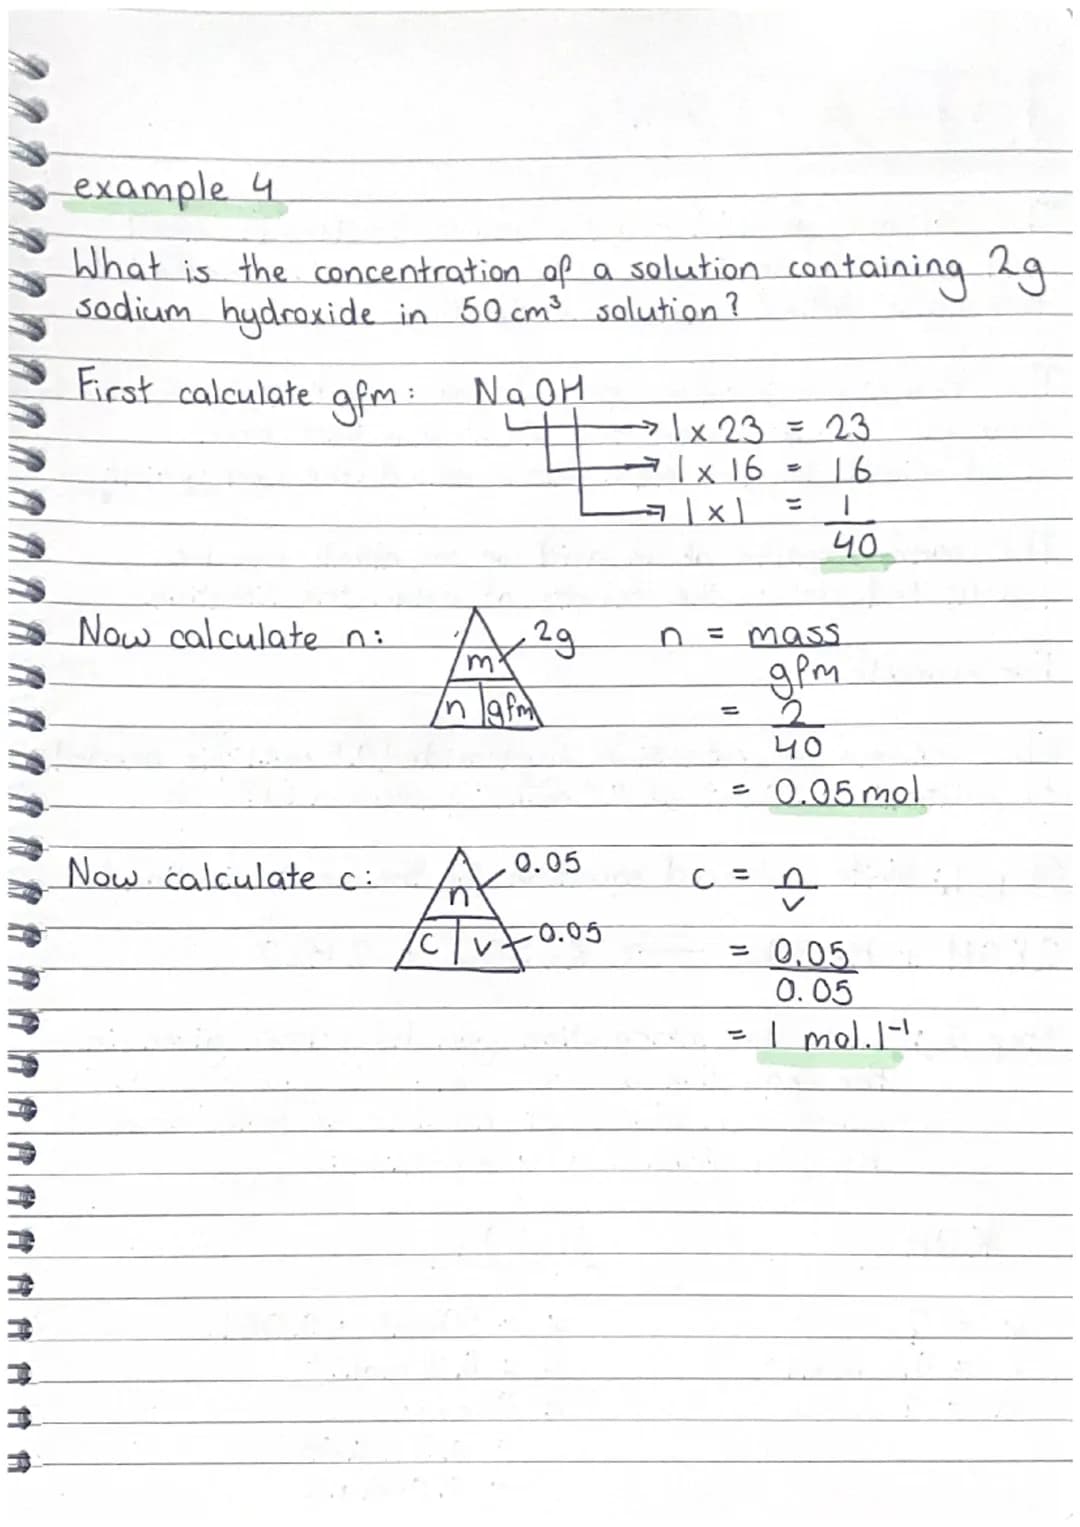 example 4
What is the concentration of a solution containing 2g
sodium hydroxide in 50 cm³ solution?
First calculate gfm: NaOH
→ 1 x 23 = 23
→ 1 x 16 = 16
→ 1 x 1 = 1
40
Now calculate n: m 2g n = mass
n gfm gfm
= 2
40
= 0.05 mol
Now calculate c: n 0.05 c = n
v
c v 0.05 = 0.05
0.05
= 1 mol.l⁻¹